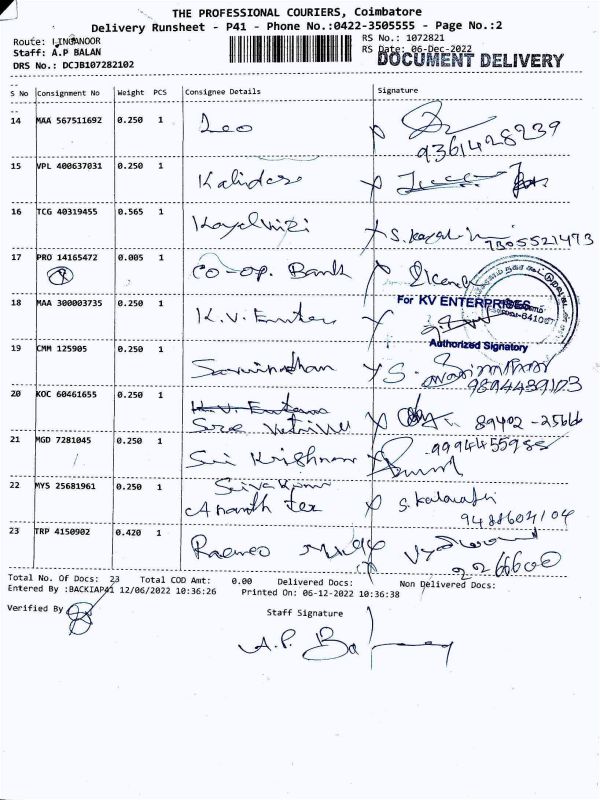 THE PROFESSIONAL COURIERS, Coimbatore
Delivery Runsheet - P41 - Phone No.:0422-3505555 - Page No.:2
Route: LINGANOOR
RS No.: 1072821
Staff: A.P BALAN
RS Date: 06-Dec-2022
DRS No.: DCJB107282102
DOCUMENT DELIVERY
S No Consignment No Weight PCS Consignee Details Signature
14 MAA 567511692 0.250 1 Leo
9361428239
15 VPL 400637031 0.250 1 Kalidass
16 TCG 40319455 0.565 1 Kayalvizi
7305521473
17 PRO 14165472 0.005 1 Co-op. Bank
For KV ENTERPRISES
18 MAA 300003735 0.250 1 K.V. Enter
641087
Authorized Signatory
19 CMM 125905 0.250 1
9894439123
20 KOC 60461655 0.250 1 K.V. Enters
89402-25666
21 MGD 7281045 0.250 1 Sri Krishnan
9994455985
22 MYS 25681961 0.250 1 Sivakumar
Ananth Tex S. Kalavathi
9488604104
23 TRP 4150902 0.420 1
2266600
Total No. Of Docs: 23 Total COD Amt: 0.00 Delivered Docs: Non Delivered Docs:
Entered By :BACKIAP41 12/06/2022 10:36:26 Printed On: 06-12-2022 10:36:38
Verified By
Staff Signature
A.P. Ba